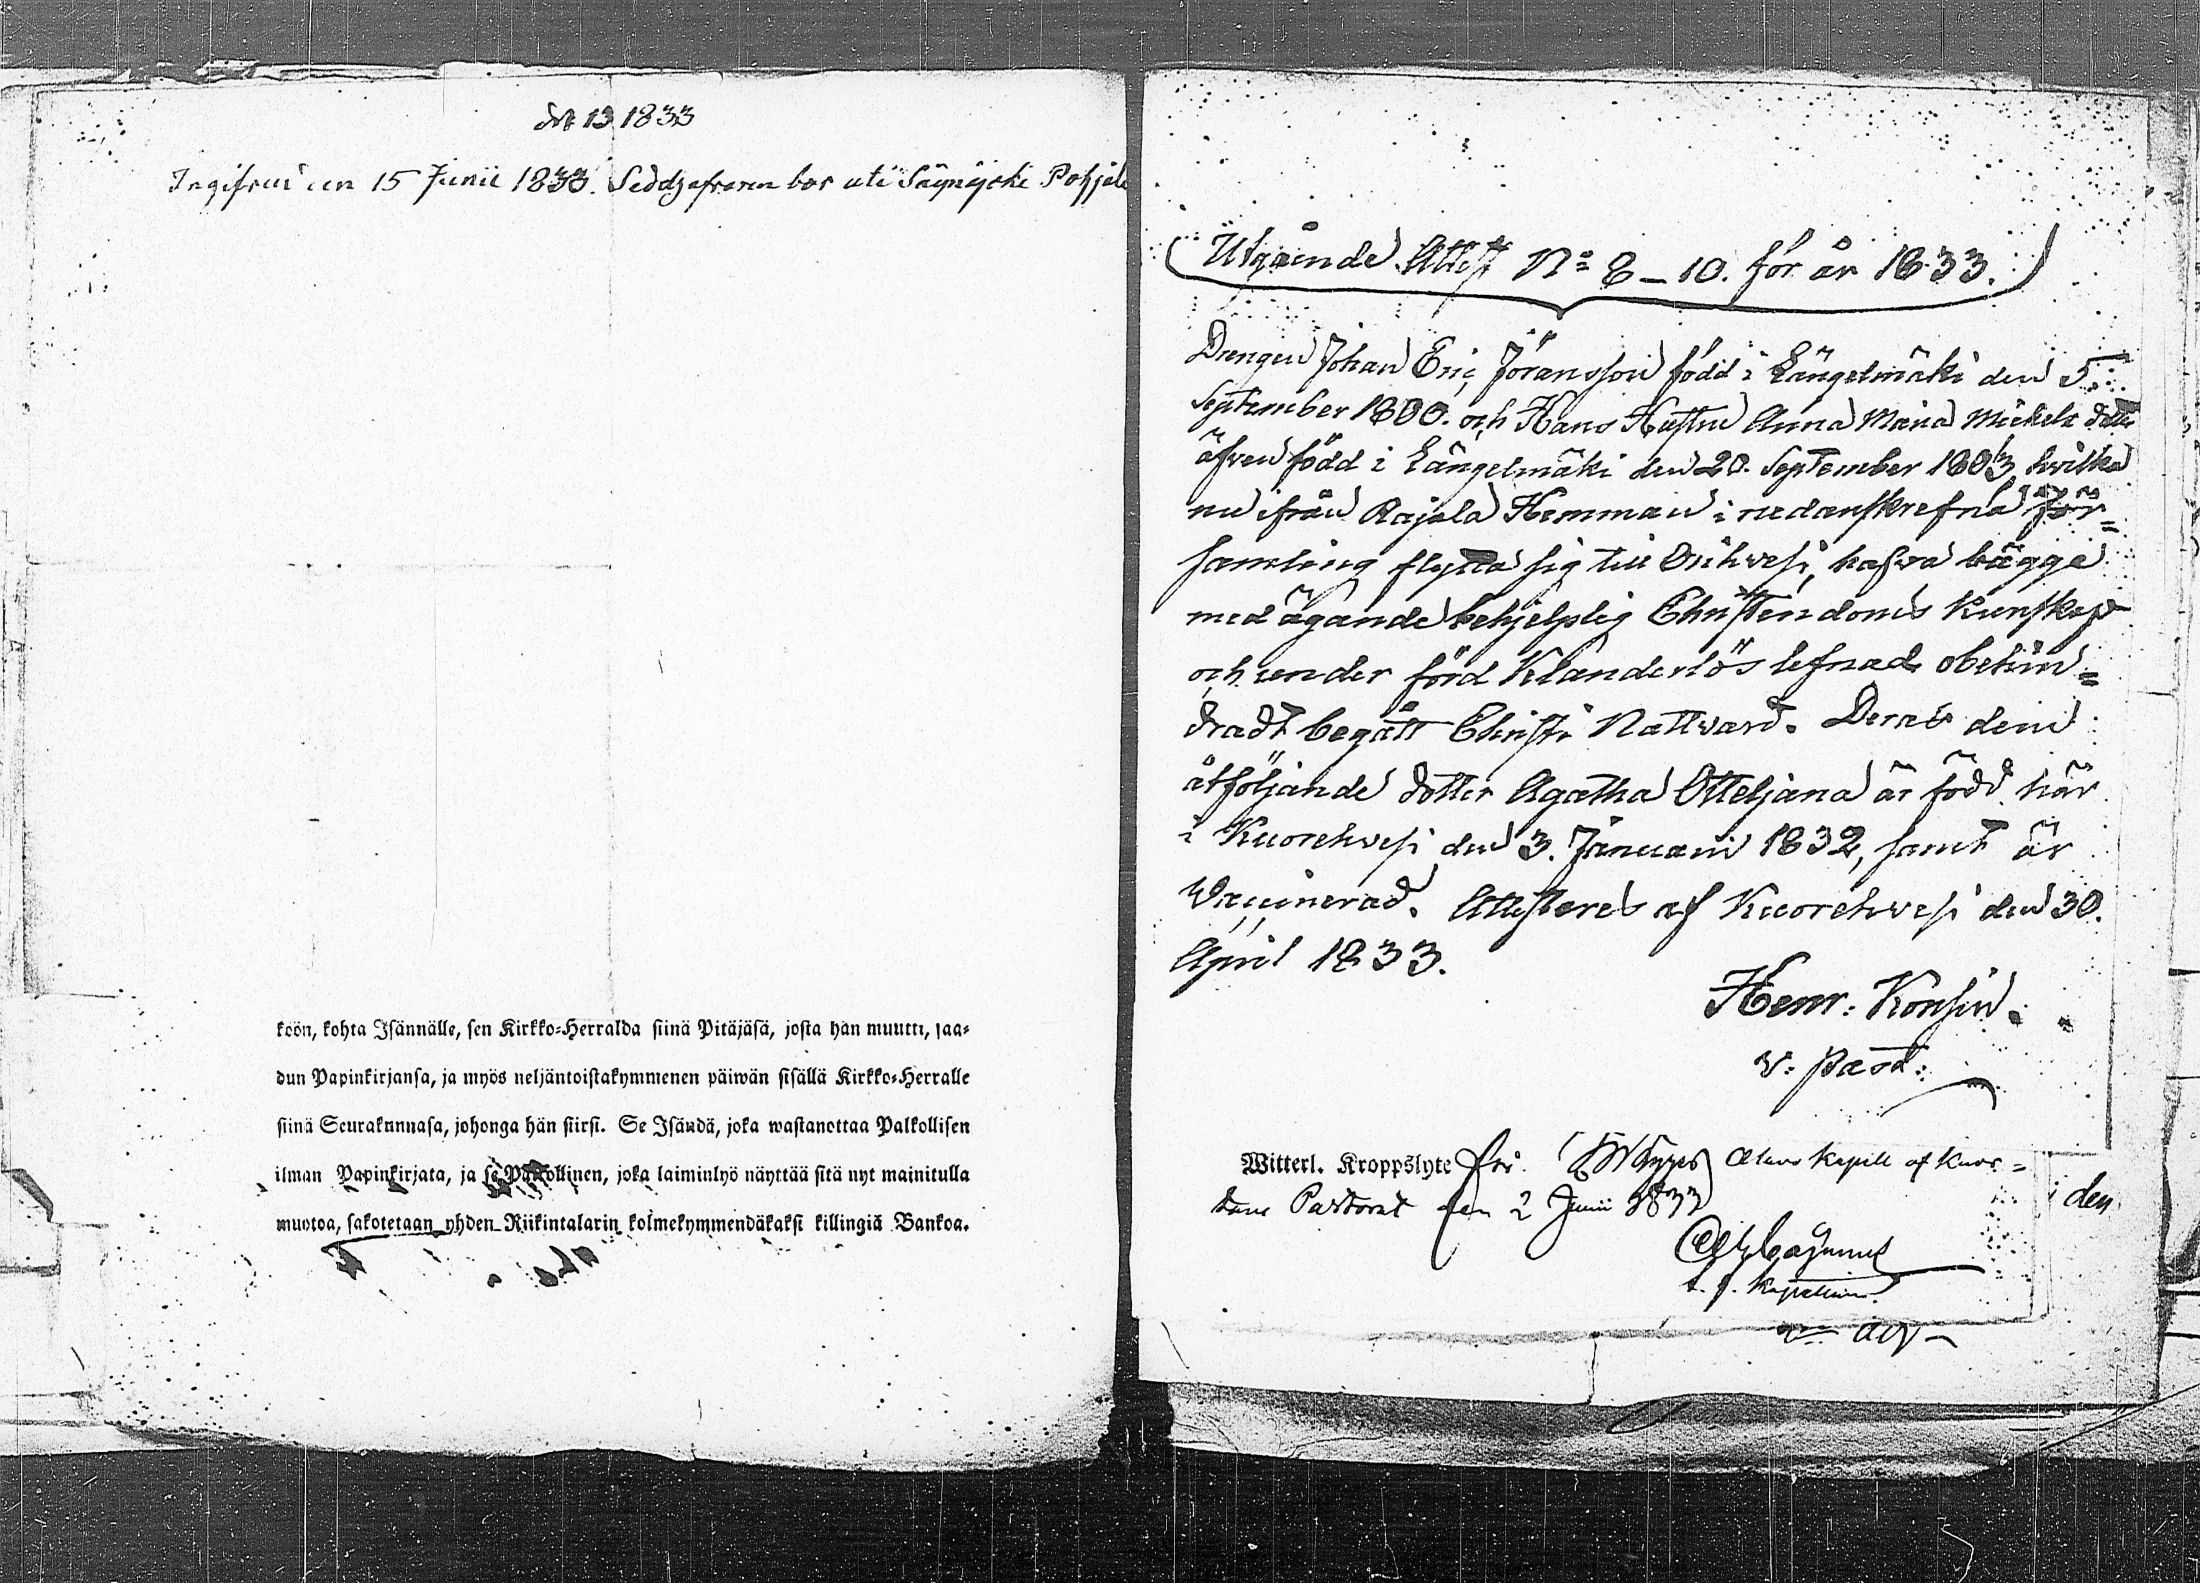 № 13 1833
Ingifven den 15 Junii 1833. Seddjafraren bor uti Säynäjoki Pohjola
koön, kohta Isännälle, sen Kirkko-Herralda siinä Pitäjäsä, josta hän muutti, saa-
dun Papinkirjansa, ja myös neljäntoistakymmenen päiwän sisällä Kirkko-Herralle
siinä Seurakunnasa, johonga hän siirsi. Se Isändä, joka wastanottaa Palkollisen
ilman Papinkirjata, ja se Palkollinen, joka laiminlyö näyttää sitä nyt mainitulla
muotoa, sakotetaan yhden Riikintalarin kolmekymmendäkaksi killingiä Bankoa.
Utgående Attest No 8-10. för år 1833.
Drengen Johan Eric Jöransson född i Längelmäki den 5.
September 1800. och Hans Hustru Anna Maria Mickels dotter
äfven född i Längelmäki den 20. September 1803, hvilka
nu ifrån Rajala Hemman i nedanskrefna för=
samling flytta sig till Orihvesi, hafva bägge
med ägande behjelplig Christendoms kunskap
och under förd Klanderlös lefnad obehin=
dradt begått Christi Nattvard. Deras dem
åtföljande dotter Agatha Otteljana är född här
i Kuorehvesi den 3. Januarii 1832, samt är
Vaccinerad. Attesteras af Kuorehvesi den 30.
April 1833.
Henr: Konsin.
v: past:
Witterl. Kroppslyte fri. Alavo Kapell af Kuor=
tane Pastorat den 2 Junii 1833
t. f. Kapellan.
den